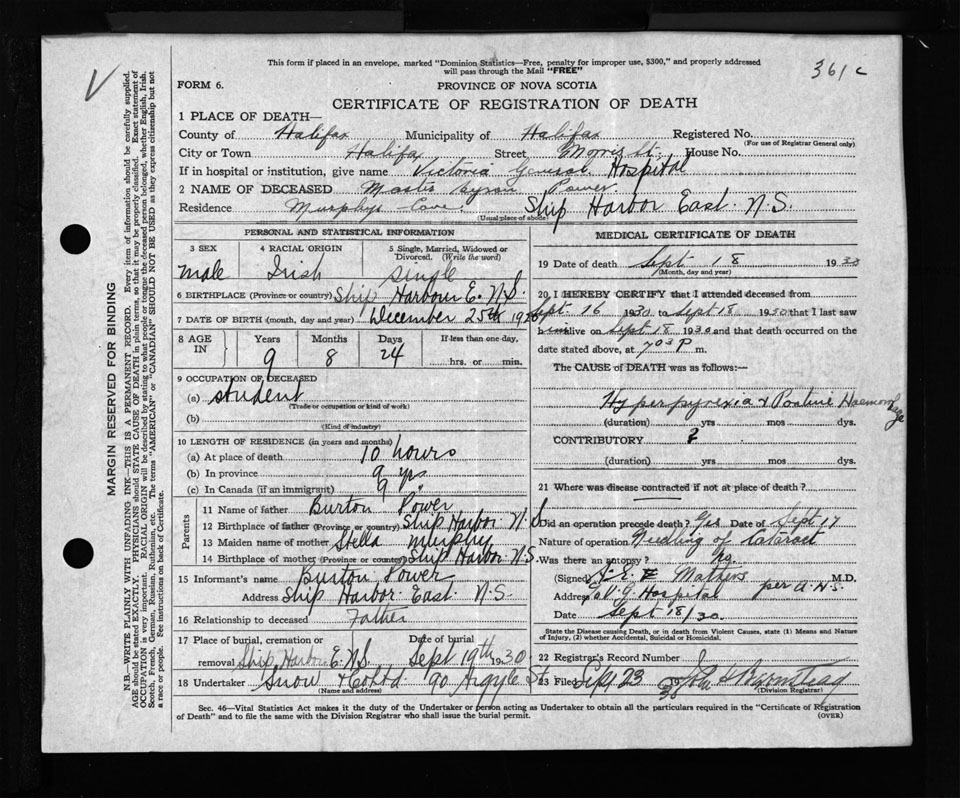 This form if placed in an envelope, marked "Dominion Statistics—Free, penalty for improper use, $300," and properly addressed
will pass through the Mail "FREE"
361c
FORM 6.
PROVINCE OF NOVA SCOTIA
CERTIFICATE OF REGISTRATION OF DEATH
1 PLACE OF DEATH—
County of Halifax Municipality of Halifax Registered No.
(For use of Registrar General only)
City or Town Halifax Street Morris St. House No.
If in hospital or institution, give name Victoria General Hospital
2 NAME OF DECEASED Byron Power
Residence Murphys Cove Ship Harbor East. N.S.
(Usual place of abode)
PERSONAL AND STATISTICAL INFORMATION
3 SEX 4 RACIAL ORIGIN 5 Single, Married, Widowed or Divorced. (Write the word)
Male Irish Single
6 BIRTHPLACE (Province or country) Ship Harbour E. N.S.
7 DATE OF BIRTH (month, day and year) December 25th
8 AGE IN Years Months Days If less than one day.
9 8 24 hrs. or min.
9 OCCUPATION OF DECEASED
(a) Student
(Trade or occupation or kind of work)
(b)
(Kind of industry)
10 LENGTH OF RESIDENCE (in years and months)
(a) At place of death 10 hours
(b) In province 9 yrs.
(c) In Canada (if an immigrant)
Parents
11 Name of father Burton Power
12 Birthplace of father (Province or country) Ship Harbor N.S
13 Maiden name of mother Stella Murphy
14 Birthplace of mother (Province or country) Ship Harbor N.S.
15 Informant's name Burton Power
Address Ship Harbor East. N.S.
16 Relationship to deceased Father
17 Place of burial, cremation or Date of burial
removal Ship Harbor E. N.S. Sept 19th 1930
18 Undertaker Snow & Co Ltd 90 Argyle St.
(Name and address)
MEDICAL CERTIFICATE OF DEATH
19 Date of death Sept 18 1930
(Month, day and year)
20 I HEREBY CERTIFY that I attended deceased from
Sept. 16 1930 to Sept 18 1930 that I last saw
him alive on Sept 18 1930 and that death occurred on
date stated above, at P m.
The CAUSE of DEATH was as follows:—
Hyperpyrexia & Pontine Haemorrhage
(duration) yrs mos. dys.
CONTRIBUTORY ?
(duration) yrs mos. dys.
21 Where was disease contracted if not at place of death?
Did an operation precede death? Yes Date of Sept 17
Nature of operation Needling of Cataract
Was there an autopsy? No.
(Signed) Mathers M.D.
Address V.G. Hospital per A.H.S.
Date Sept 18/30.
State the Disease causing Death, or in death from Violent Causes, state (1) Means and Nature
of Injury, (2) whether Accidental, Suicidal or Homicidal.
22 Registrar's Record Number
23 Filed Sept 23 1930 John
(Division Registrar)
Sec. 46—Vital Statistics Act makes it the duty of the Undertaker or person acting as Undertaker to obtain all the particulars required in the "Certificate of Registration
of Death" and to file the same with the Division Registrar who shall issue the burial permit.
(OVER)
MARGIN RESERVED FOR BINDING
N.B.—WRITE PLAINLY WITH UNFADING INK—THIS IS A PERMANENT RECORD. Every item of information should be carefully supplied.
AGE should be stated EXACTLY. PHYSICIANS should STATE CAUSE OF DEATH in plain terms, so that it may be properly classified. Exact statement of
OCCUPATION is very important. RACIAL ORIGIN will be described by stating to what people or tongue the deceased person belonged, whether English, Irish,
Scotch, French, German, Russian, Ruthenian, etc. The terms "AMERICAN" or "CANADIAN" SHOULD NOT BE USED as they express citizenship but not
a race or people. See instructions on back of Certificate.